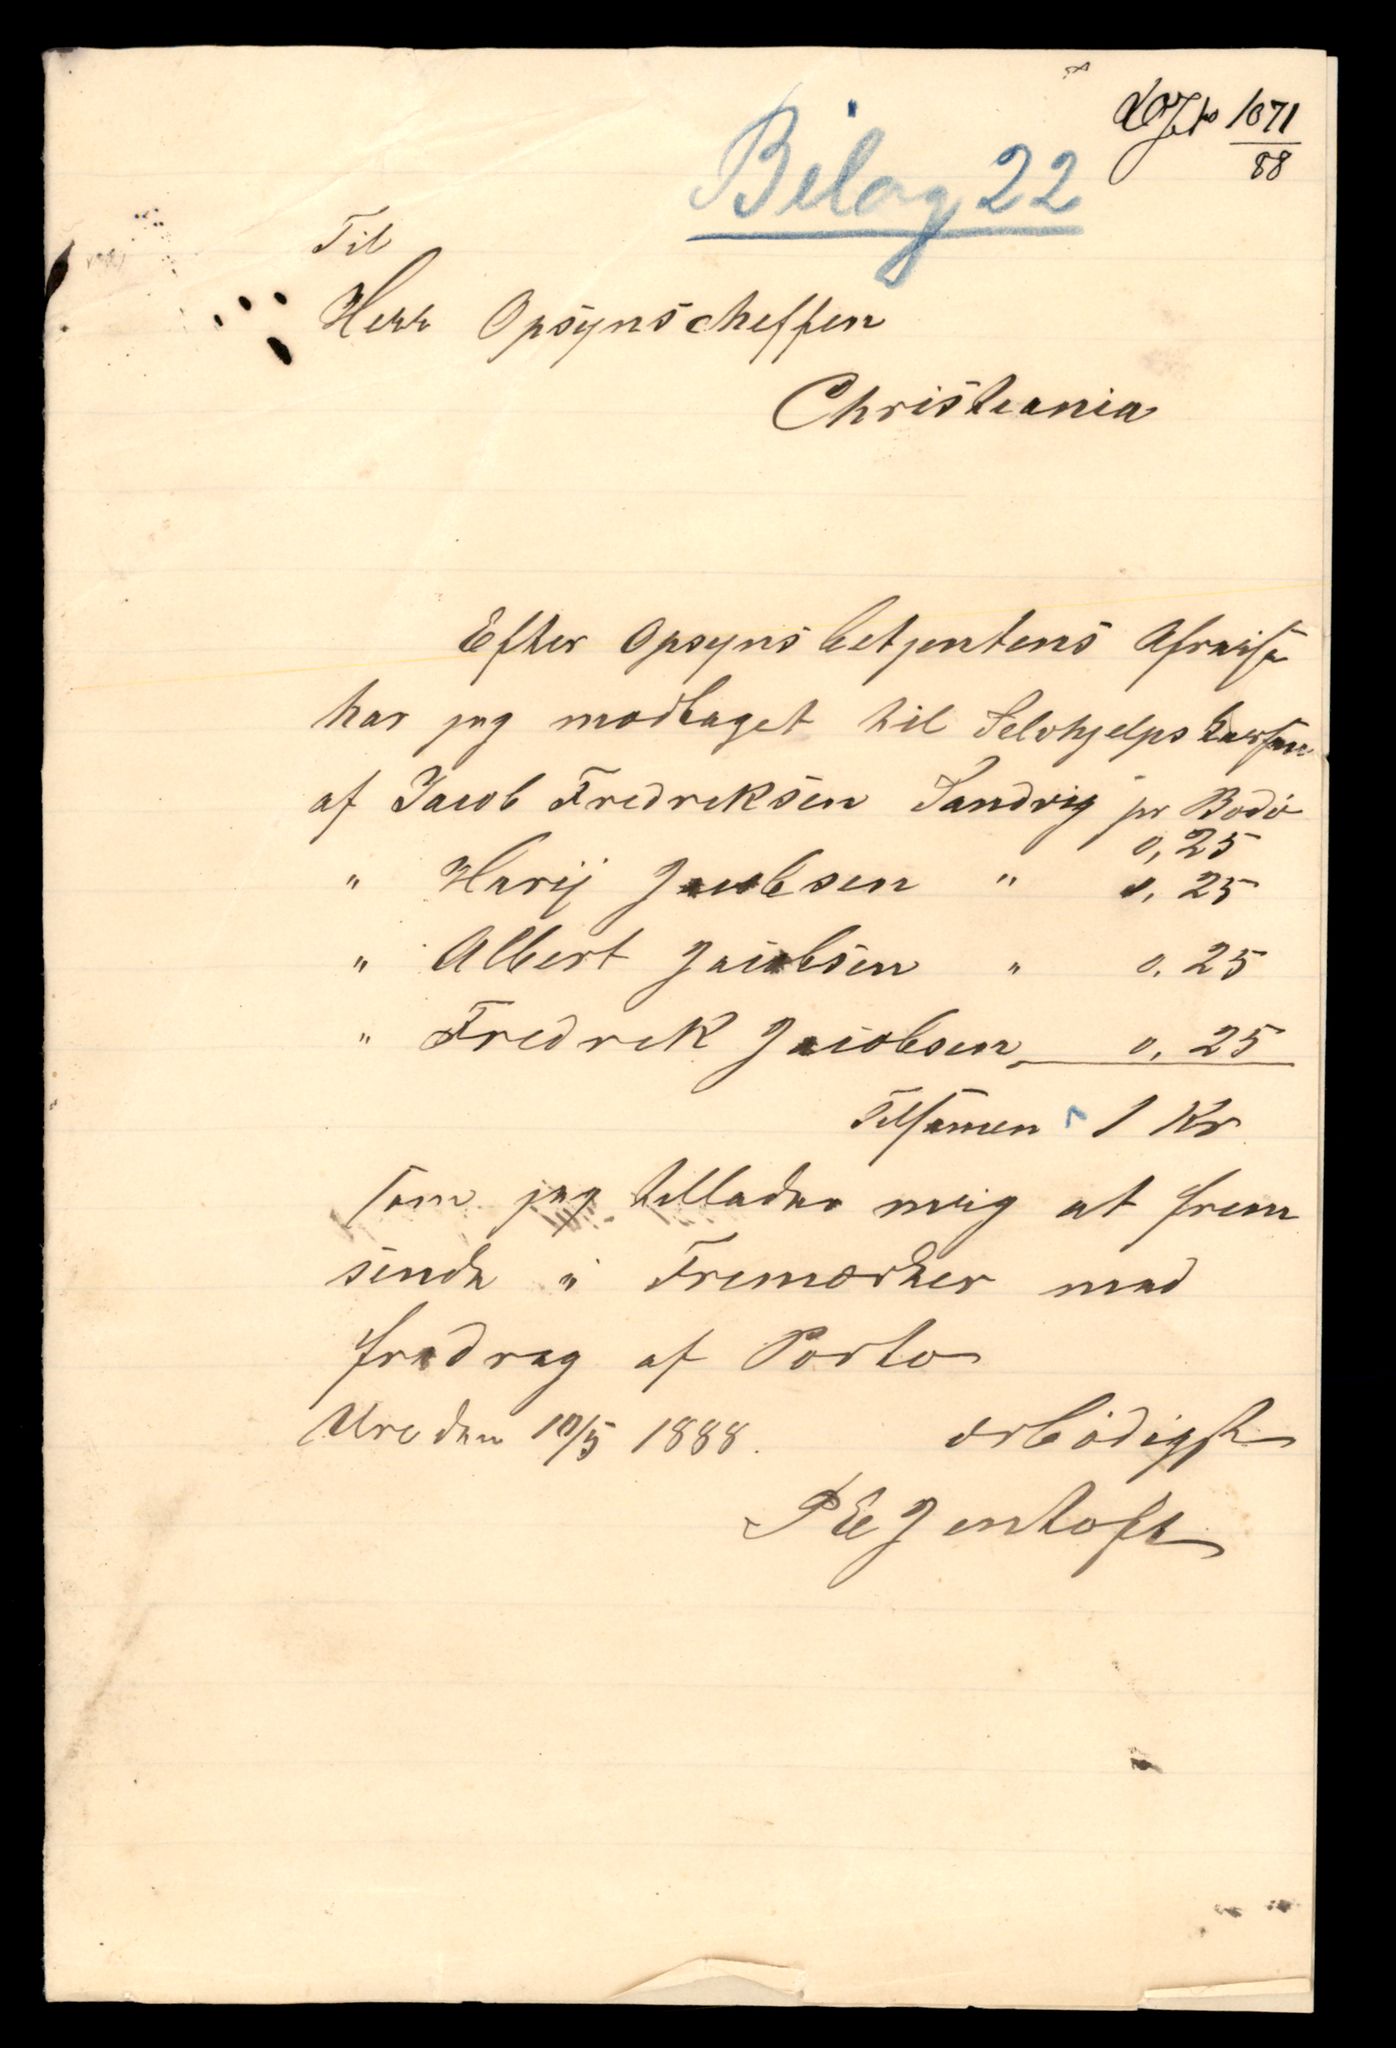 1071
88
Bilag 22
Til
Herr Opsynscheffen
Christiania
Efter Opsynsbetjentens Afreise
har jeg modtaget til Selvhjelpskassen
af Jacob Fredreksen Sandvig pr Bodö
0,25
" Harij Jacobsen " 0,25
" Albert Jacobsen " 0,25
" Fredrek Jacobsen 0,25
Tilsamen 1 Kr
som jeg tillader meig at frem
sende i Fremærker med
fradrag af Porto
Ure den 10/5 1888. ærbödigst
P E Jentoft